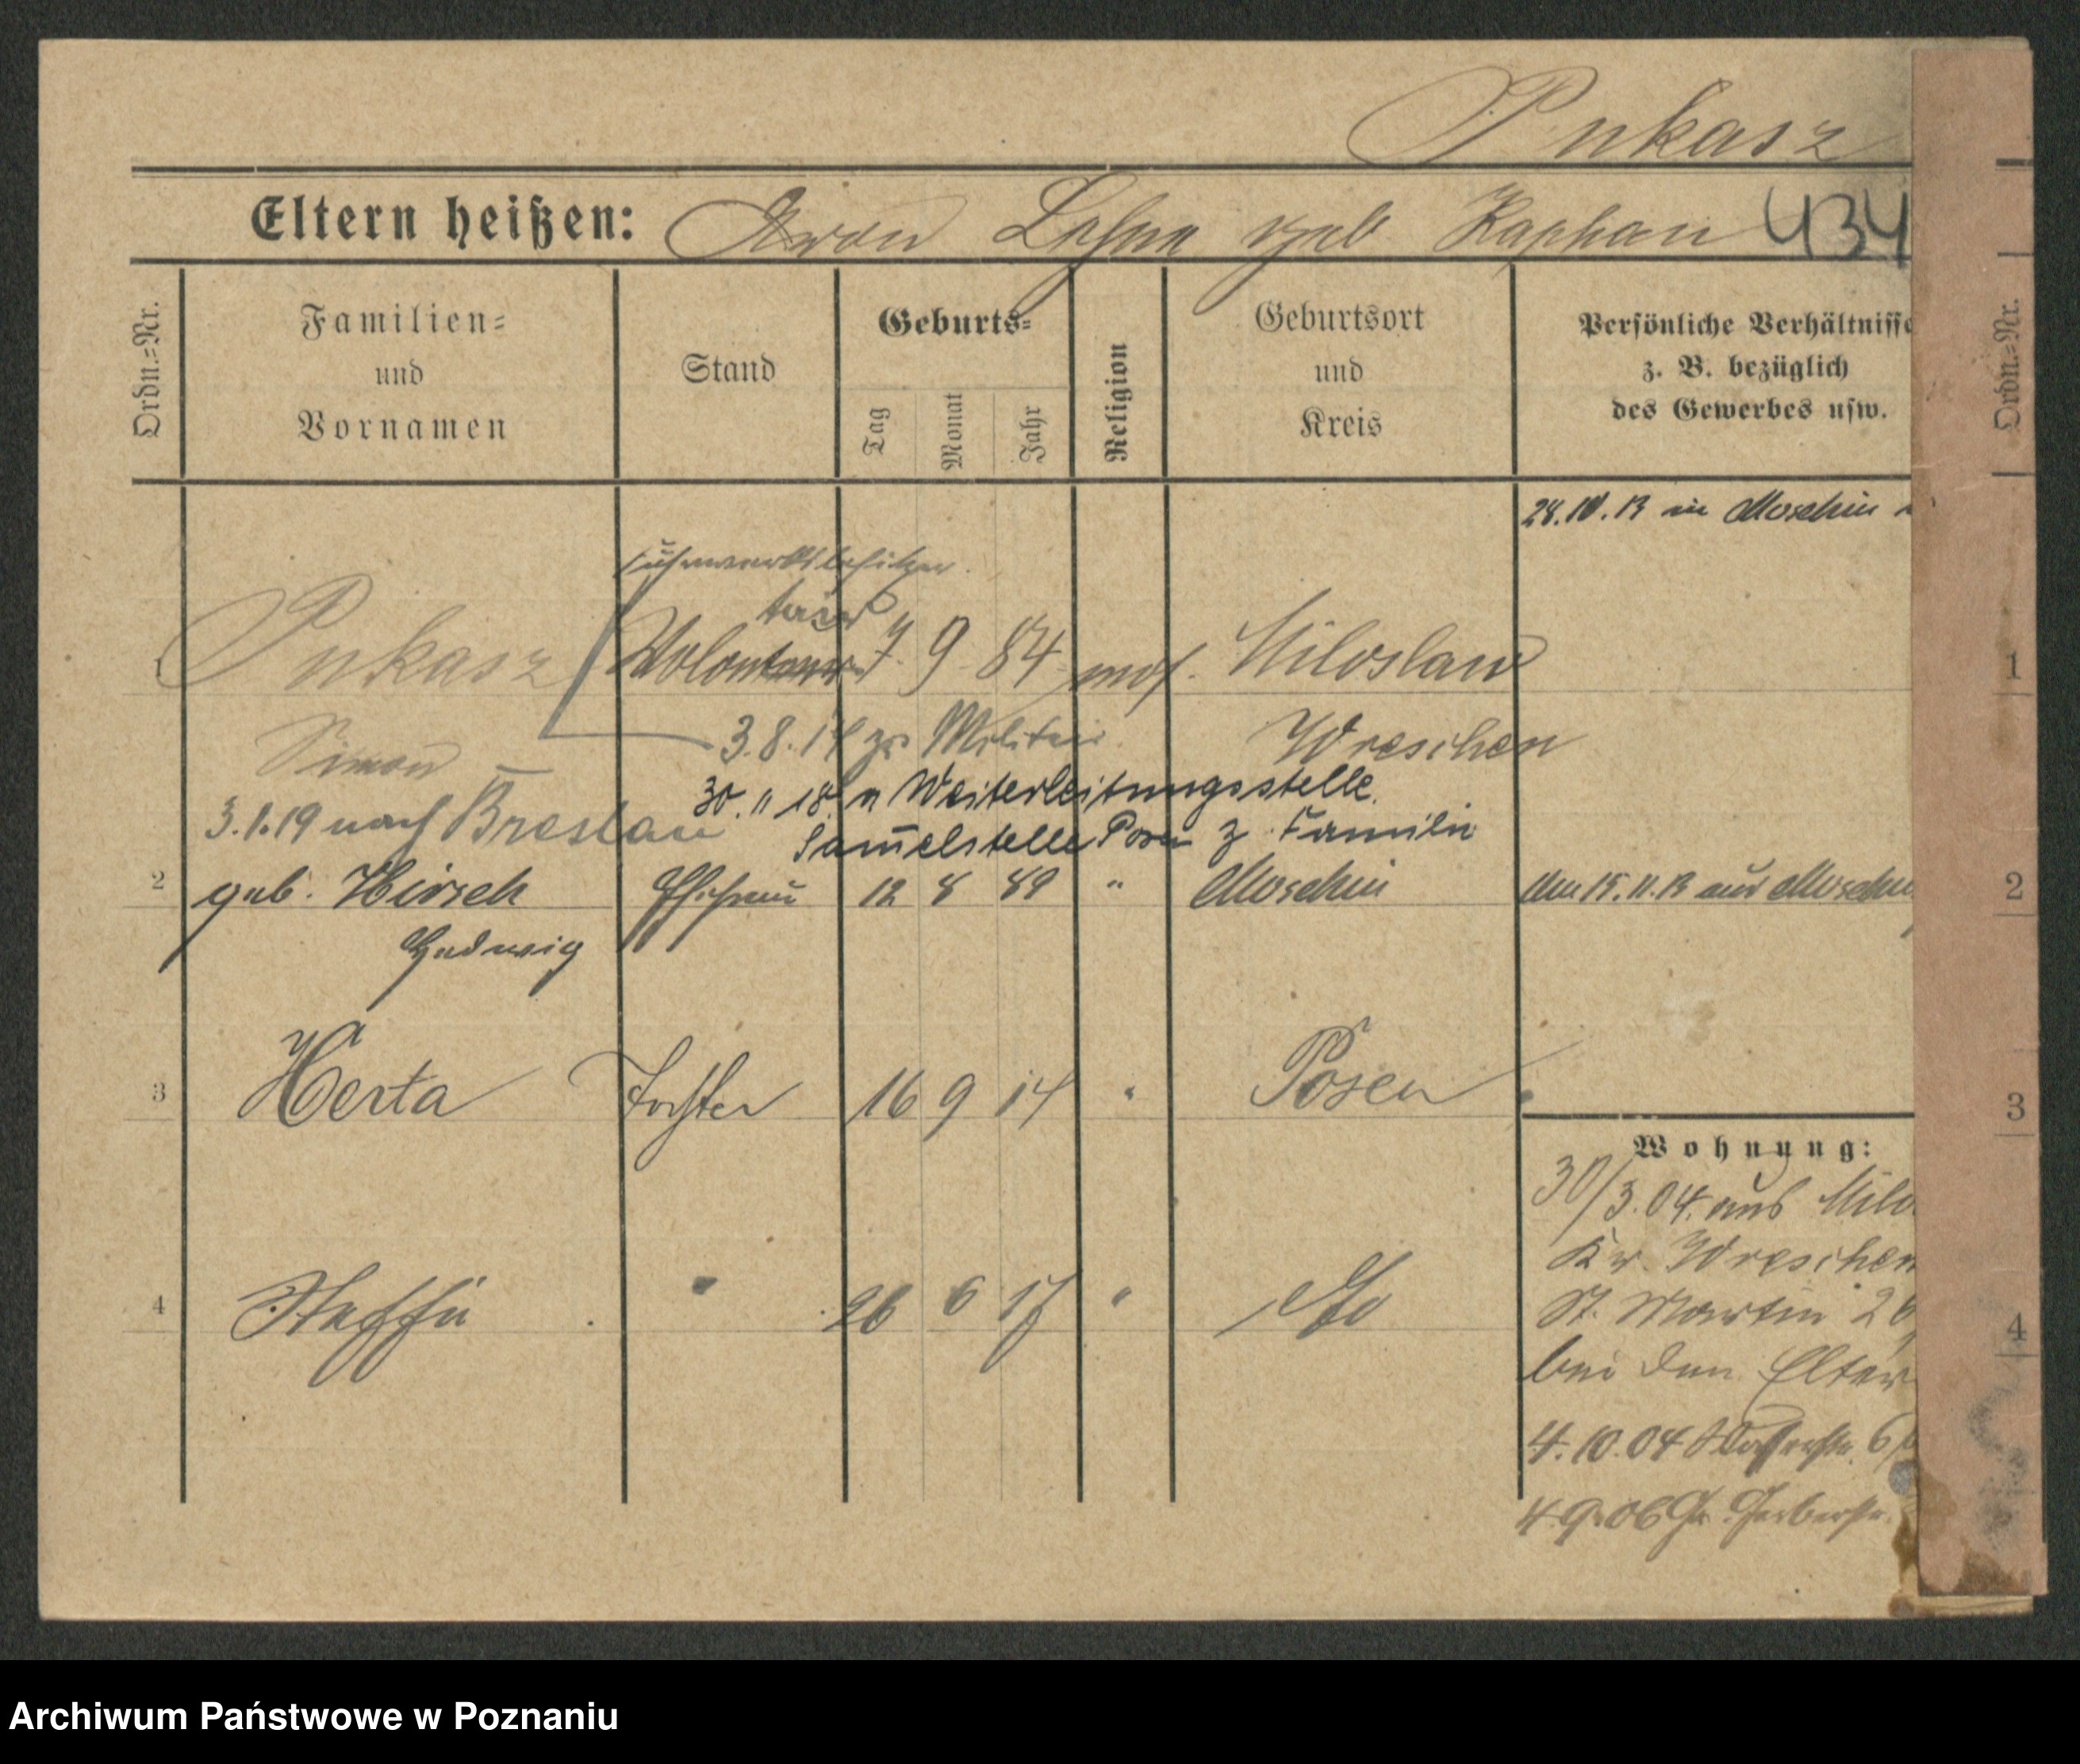 Pukasz
Eltern heißen: Aron Lesna geb. Kaphan 434
Ordn.-Nr.
Familien-
und
Vornamen
Stand
Geburts-
Tag
Monat
Jahr
Religion
Geburtsort
und
Kreis
Persönliche Verhältnisse
z. B. bezüglich
des Gewerbes usw.
Ordn.-Nr.
in Moschin
Fuhrwerksbesitzer
1 Pukasz 7. 9 84 mos. Miloslaw 1
Simon 3.8.14 zr Militair Wreschen
30. 11 18. n Weiterleitungsstelle
3.1.19 nach Breslau
Sam̅elstelle Posen z. Familie
2 geb. Hirsch Ehefrau 12 8 89 " Moschin 15.11.13 aus Moschin 2
Hedwig
3 Herta Tochter 16 9 14 " Posen 3
Wohnung:
30/3.04. aus Milo
Kr. Wreschen
4 Steffi " 26 6 17 " dto 4
St. Martin 26
bei den Elter
4.10.04 Wasserstr. 6
4.9.06 Gr. Gerberstr.
Archiwum Państwowe w Poznaniu